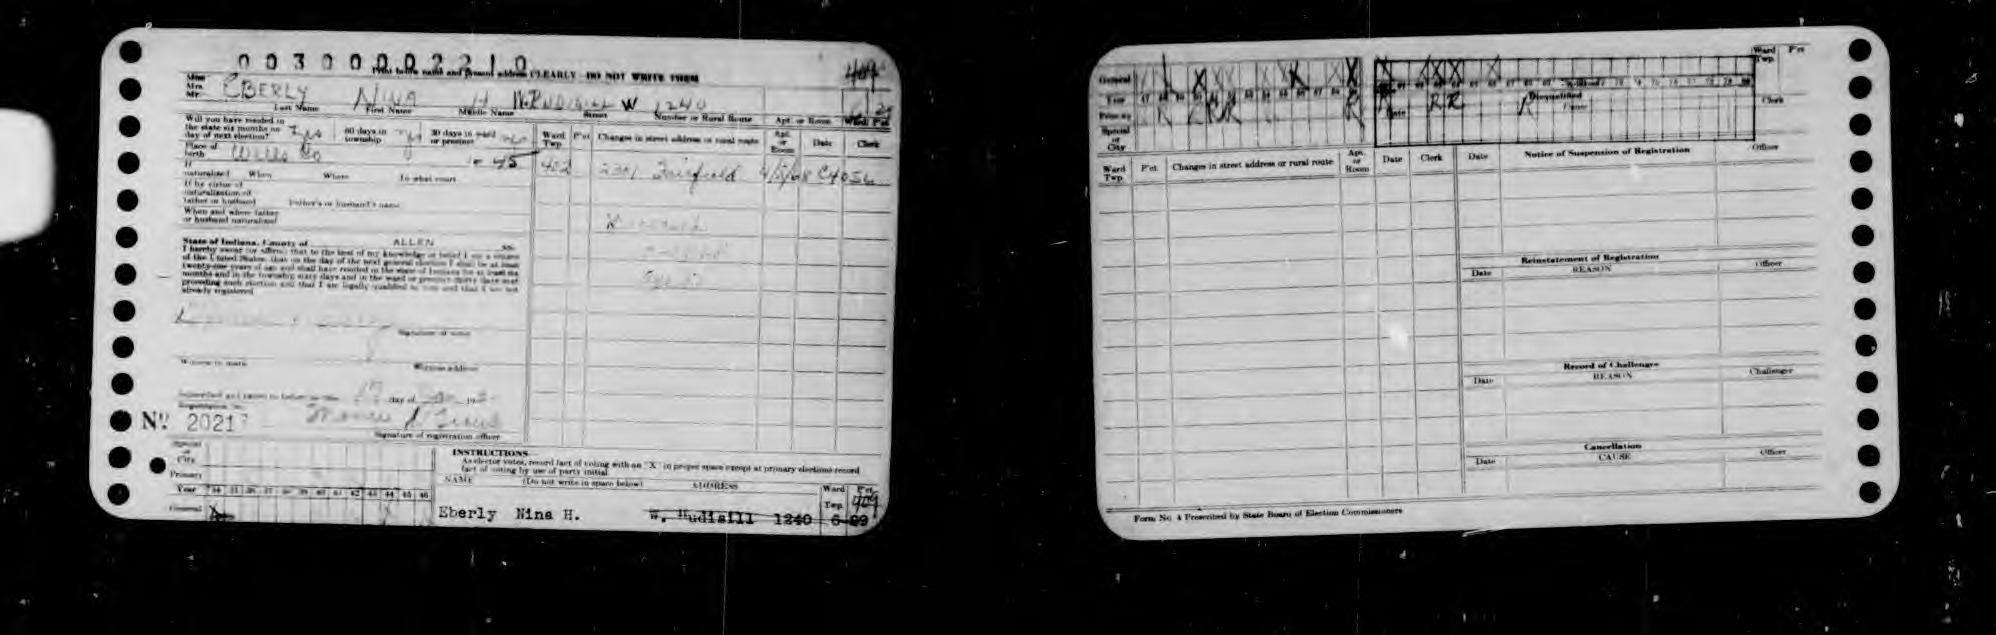 00300002210
Print below name and present address CLEARLY—DO NOT WRITE THEM
409
Miss
Mrs.
Mr.
EBERLY NINA H W. RUDISILL W 1240 6 29
Last Name First Name Middle Name Street Number or Rural Route Apt. or Room Ward Pct
Will you have resided in
the state six months on
day of next election? Yes 60 days in
township Yes 30 days in ward
or precinct
Place of
birth Wells Co 45
If
naturalized When Where In what court
If by virtue of
naturalization of
father or husband Father's or husband's name
When and where father
or husband naturalized
State of Indiana, County of ALLEN ss.
I hereby swear (or affirm) that to the best of my knowledge or belief I am a citizen
of the United States; that on the day of the next general election I shall be at least
twenty-one years of age and shall have resided in the state of Indiana for at least six
months and in the township sixty days and in the ward or precinct thirty days next
preceding such election and that I am legally qualified to vote and that I am not
already registered
Signature of voter
Witness to mark Witness address
Subscribed and sworn to before me this 17 day of 19
Registration No.
No. 2021
Signature of registration officer
Ward
Twp. P'ct Changes in street address or rural route Apt.
or
Room Date Clerk
402 2301 Fairfield C4056
Special
or
City
Primary
Year '34 35 36 37 38 39 40 41 42 43 44 45 46
General X
INSTRUCTIONS
As elector votes, record fact of voting with an "X" in proper space except at primary elections record
fact of voting by use of party initial
NAME (Do not write in space below) ADDRESS Ward
Twp. P'ct
409
Eberly Nina H. W. Rudisill 1240 6-29
General X X X X X X X X X X X X
Year 47 48 49 50 51 52 53 54 55 56 57 58 59
Primary R R R R R R R
Special
or
City
Disqualified
Date Cause
Ward
Twp. P'ct
Clerk
Ward
Twp. P'ct Changes in street address or rural route Apt.
or
Room Date Clerk
Date Notice of Suspension of Registration Officer
Reinstatement of Registration
Date REASON Officer
Record of Challenges
Date REASON Challenger
Cancellation
Date CAUSE Officer
Form No. 4 Prescribed by State Board of Election Commissioners